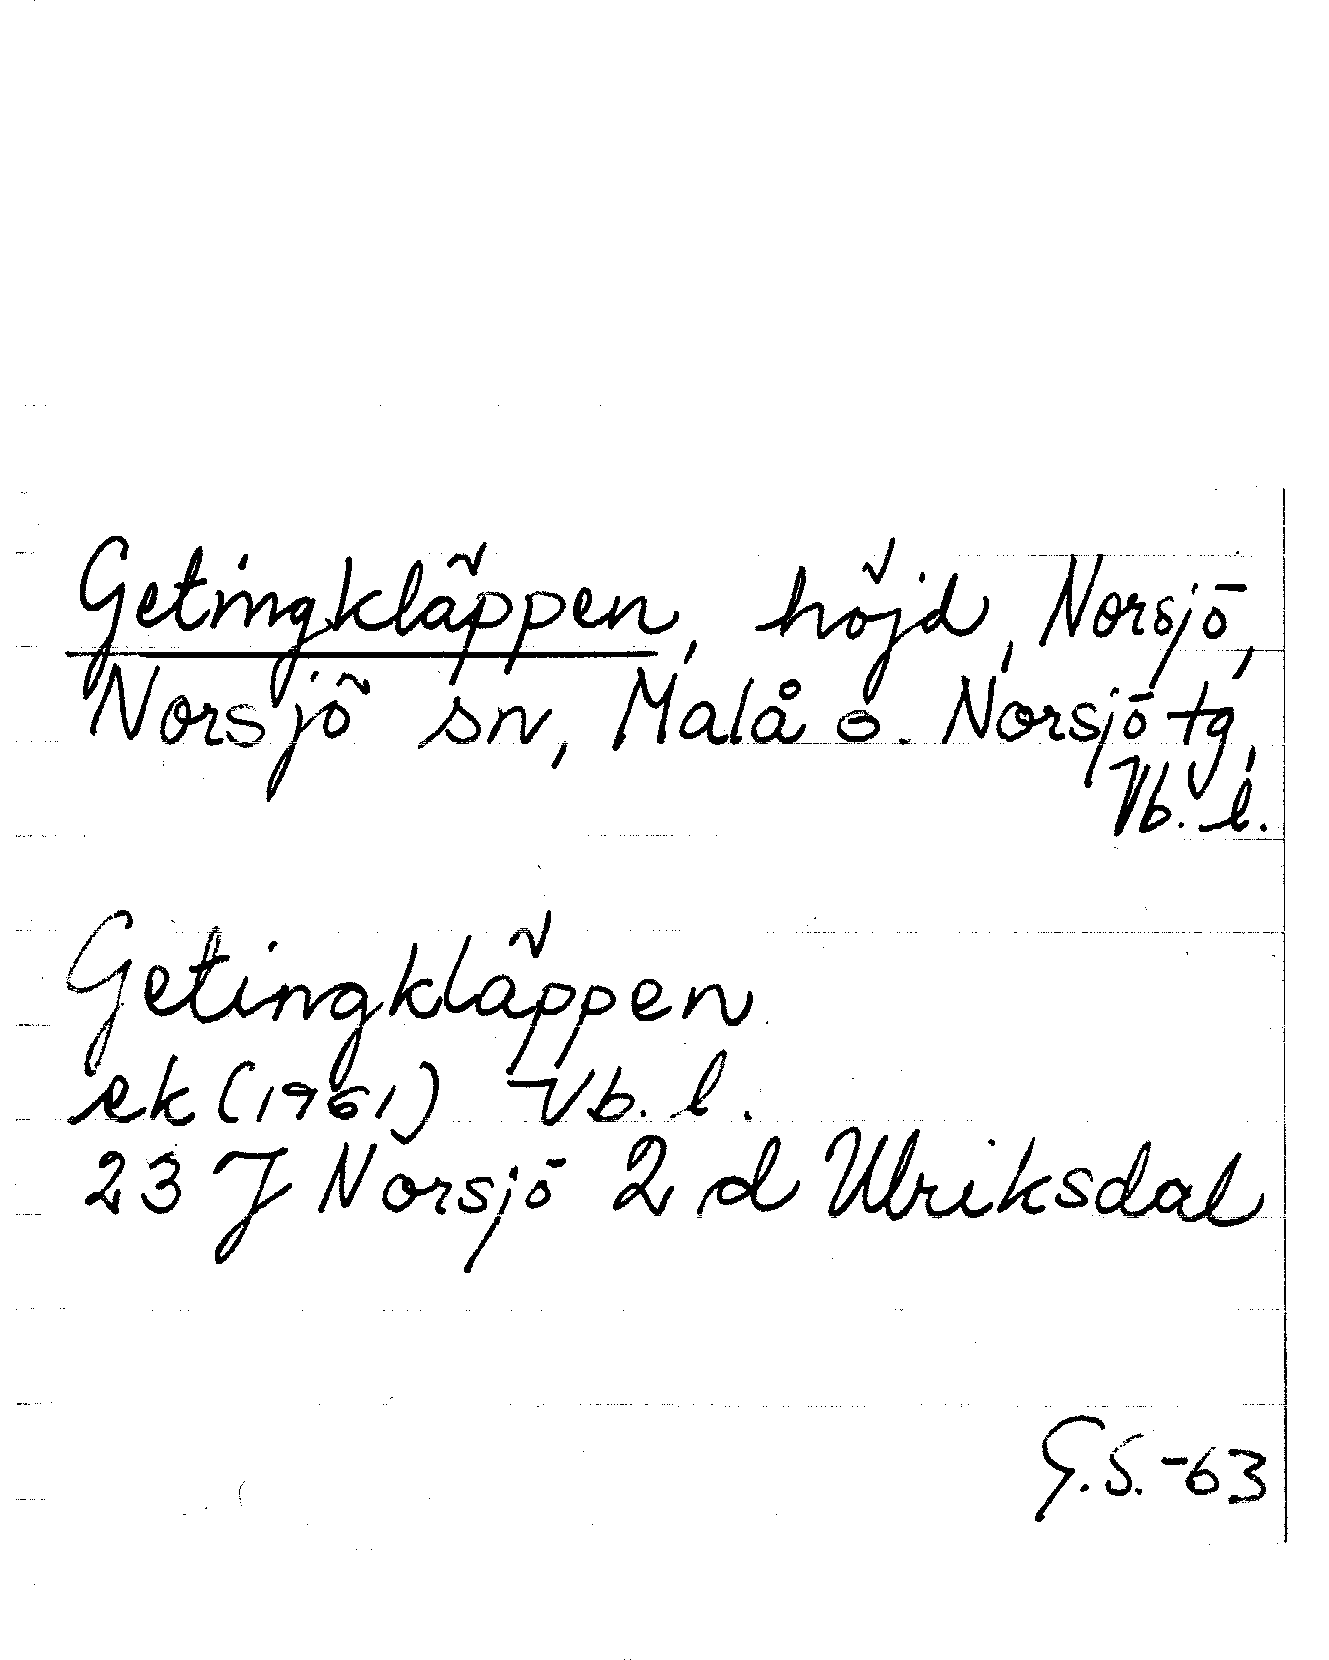 Getingkläppen, höjd, Norsjö,
Norsjö sn, Malå o. Norsjö tg,
Vb. l.
Getingkläppen
ek (1961) Vb. l.
23 J Norsjö 2 d Ulriksdal
G.S.-63